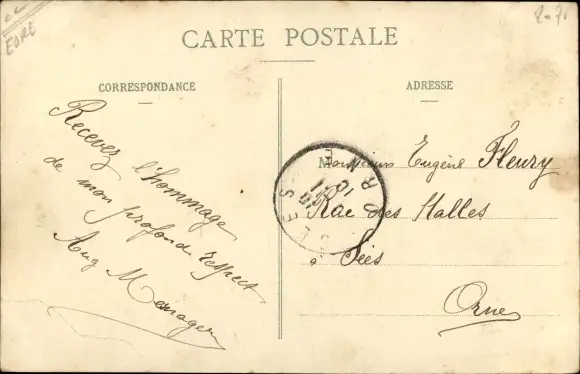 EURE
2-70
CARTE POSTALE
CORRESPONDANCE
Recevez l'hommage
de mon profond respect
Aug
ADRESSE
Monsieur Eugène Fleury
Rue des Halles
à Sées
Orne
SEES
ORNE